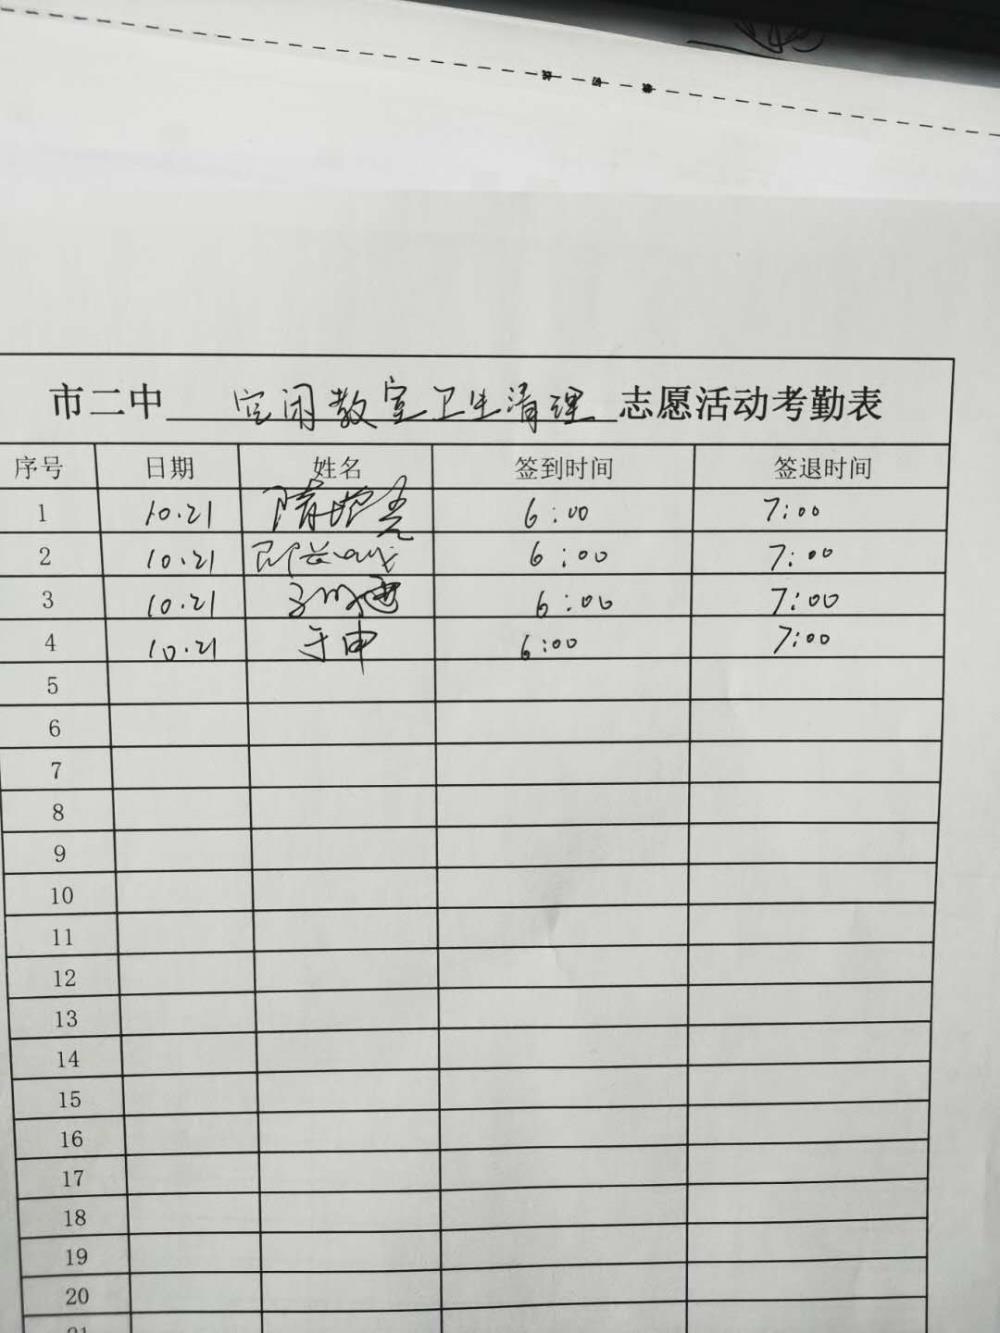 市二中 空闲教室卫生清理 志愿活动考勤表
序号 日期 姓名 签到时间 签退时间
1 10.21 6:00 7:00
2 10.21 6:00 7:00
3 10.21 6:00 7:00
4 10.21 于申 6:00 7:00
5
6
7
8
9
10
11
12
13
14
15
16
17
18
19
20
21